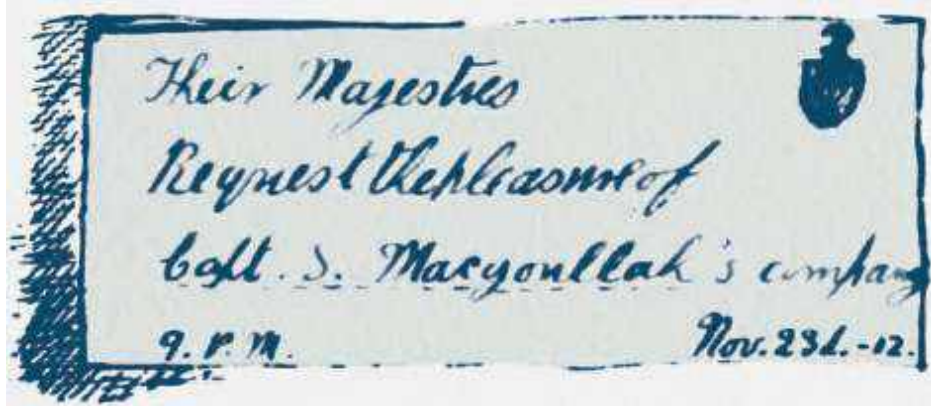 Their Majesties
Request the pleasure of
Capt. S. Macgoullah's company
9. P. M. Nov. 23d. -12.